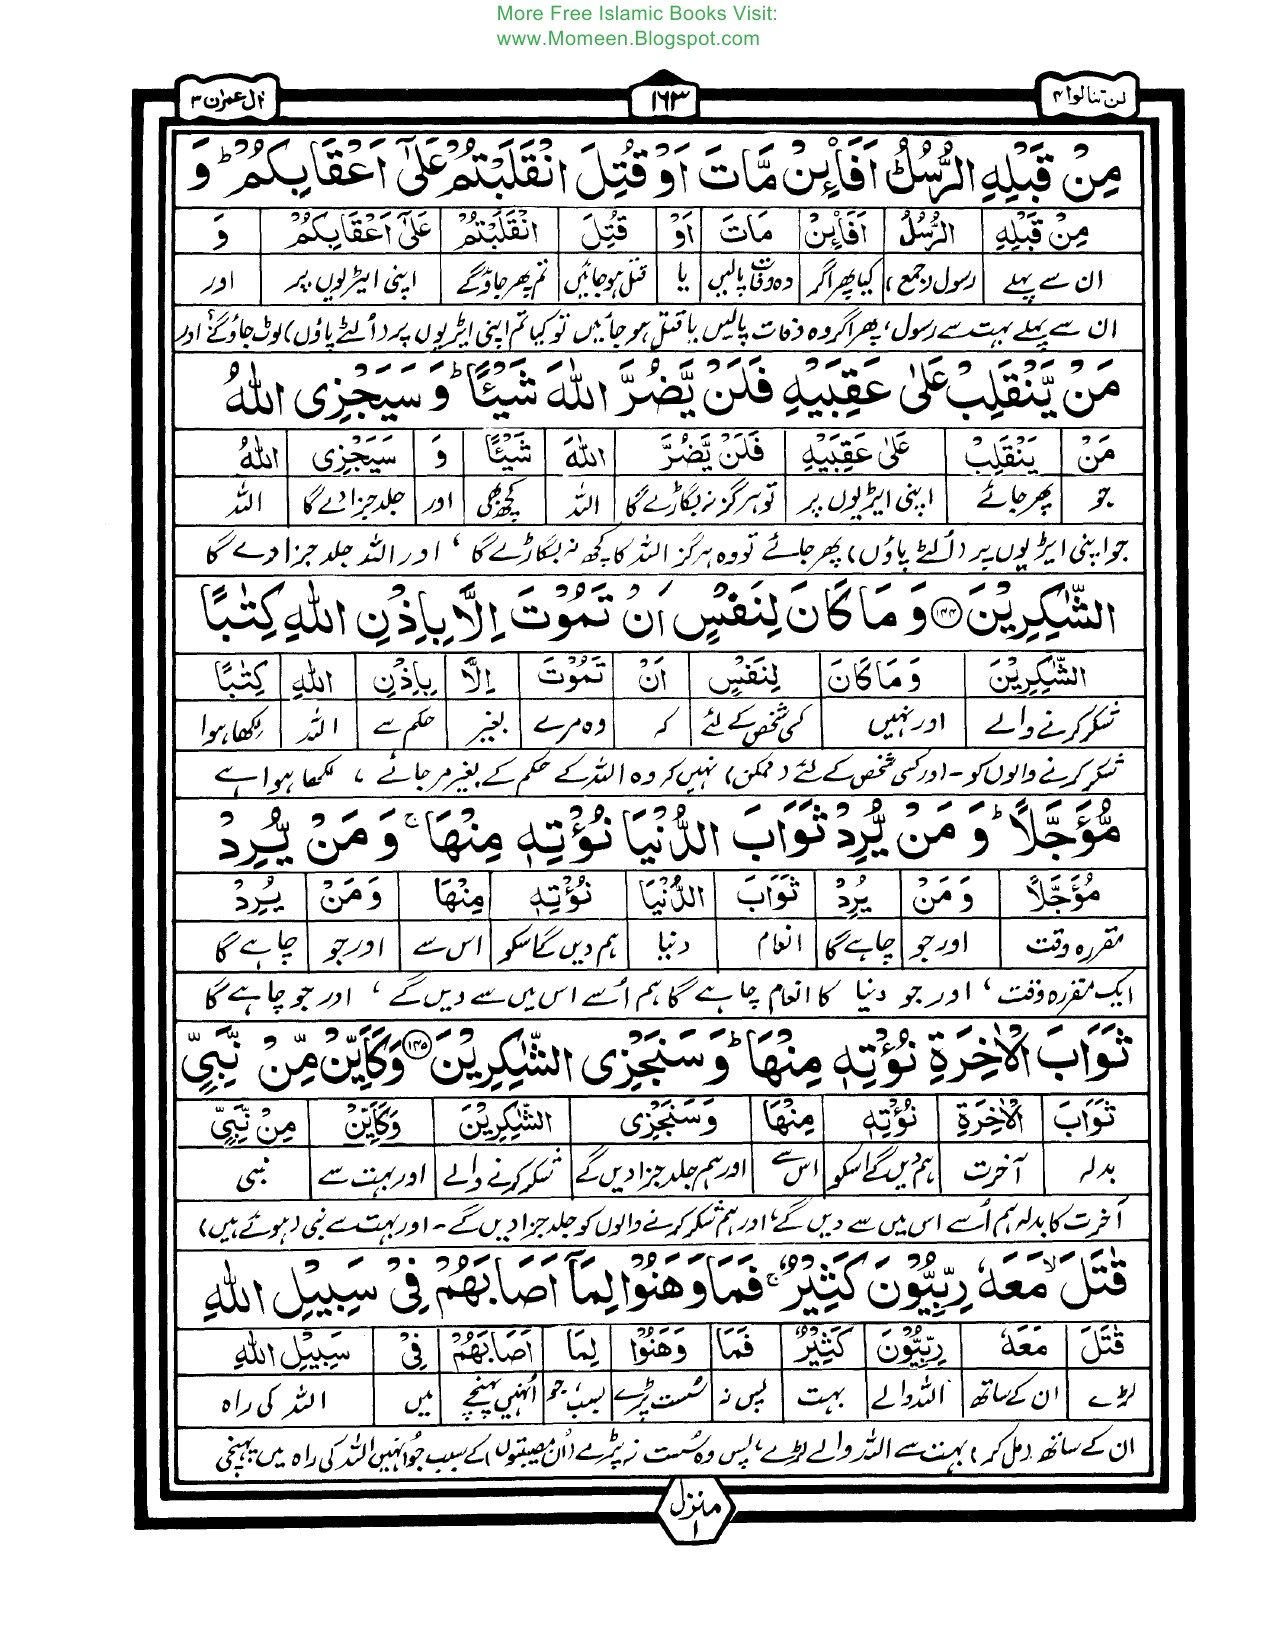 More Free Islamic Books Visit:
www.Momeen.Blogspot.com
لن تنالوا ۴
۱۶۳
اٰل عمران ۳
مِنْ قَبْلِهِ الرُّسُلُ ؕ اَفَا۠ئِنْ مَّاتَ اَوْ قُتِلَ انْقَلَبْتُمْ عَلٰۤی اَعْقَابِكُمْ ؕ وَ
مِنْ قَبْلِهِ الرُّسُلُ اَفَا۠ئِنْ مَاتَ اَوْ قُتِلَ انْقَلَبْتُمْ عَلٰۤی اَعْقَابِكُمْ وَ
ان سے پہلے رسول (جمع) کیا پھر اگر وہ وفات پالیں یا قتل ہو جائیں تم پھر جاؤگے اپنی ایڑیوں پر اور
ان سے پہلے بہت سے رسول، پھر اگر وہ وفات پالیں یا قتل ہو جائیں تو کیا تم اپنی ایڑیوں پر (اُلٹے پاؤں) لوٹ جاؤگے، اور
مَنْ یَّنْقَلِبْ عَلٰی عَقِبَیْهِ فَلَنْ یَّضُرَّ اللّٰهَ شَیْـًٔا ؕ وَ سَیَجْزِی اللّٰهُ
مَنْ یَنْقَلِبْ عَلٰی عَقِبَیْهِ فَلَنْ یَّضُرَّ اللّٰهَ شَیْـًٔا وَ سَیَجْزِی اللّٰهُ
جو پھر جائے اپنی ایڑیوں پر تو ہرگز نہ بگاڑے گا اللہ کچھ بھی اور جلد جزا دے گا اللہ
جو اپنی ایڑیوں پر (اُلٹے پاؤں) پھر جائے تو وہ ہرگز اللہ کا کچھ نہ بگاڑے گا، اور اللہ جلد جزا دے گا
الشّٰكِرِیْنَ ۝۱۴۴ وَ مَا كَانَ لِنَفْسٍ اَنْ تَمُوْتَ اِلَّا بِاِذْنِ اللّٰهِ كِتٰبًا
الشّٰكِرِیْنَ وَ مَا كَانَ لِنَفْسٍ اَنْ تَمُوْتَ اِلَّا بِاِذْنِ اللّٰهِ كِتٰبًا
شکر کرنے والے اور نہیں کسی شخص کے لئے کہ وہ مرے بغیر حکم سے اللہ لکھا ہوا
شکر کرنے والوں کو - اور کسی شخص کے لئے (ممکن) نہیں کہ وہ اللہ کے حکم کے بغیر مر جائے، لکھا ہوا ہے
مُّؤَجَّلًا ؕ وَ مَنْ یُّرِدْ ثَوَابَ الدُّنْیَا نُؤْتِهٖ مِنْهَا ۚ وَ مَنْ یُّرِدْ
مُؤَجَّلًا وَ مَنْ یُرِدْ ثَوَابَ الدُّنْیَا نُؤْتِهٖ مِنْهَا وَ مَنْ یُرِدْ
مقررہ وقت اور جو چاہے گا انعام دنیا ہم دیں گے اسکو اس سے اور جو چاہے گا
ایک مقررہ وقت، اور جو دنیا کا انعام چاہے گا ہم اُسے اس میں سے دیں گے، اور جو چاہے گا
ثَوَابَ الْاٰخِرَةِ نُؤْتِهٖ مِنْهَا ؕ وَ سَنَجْزِی الشّٰكِرِیْنَ ۝۱۴۵ وَ كَاَیِّنْ مِّنْ نَّبِیٍّ
ثَوَابَ الْاٰخِرَةِ نُؤْتِهٖ مِنْهَا وَ سَنَجْزِی الشّٰكِرِیْنَ وَكَاَیِّنْ مِنْ نَّبِیٍّ
بدلہ آخرت ہم دیں گے اسکو اس سے اور ہم جلد جزا دیں گے شکر کرنے والے اور بہت سے نبی
آخرت کا بدلہ ہم اُسے اس میں سے دیں گے، اور ہم شکر کرنے والوں کو جلد جزا دیں گے - اور بہت سے نبی (ہوئے ہیں)
قٰتَلَ ۙ مَعَهٗ رِبِّیُّوْنَ كَثِیْرٌ ۚ فَمَا وَهَنُوْا لِمَاۤ اَصَابَهُمْ فِیْ سَبِیْلِ اللّٰهِ
قٰتَلَ مَعَهٗ رِبِّیُّوْنَ كَثِیْرٌ فَمَا وَهَنُوْا لِمَا اَصَابَهُمْ فِیْ سَبِیْلِ اللّٰهِ
لڑے ان کے ساتھ اللہ والے بہت پس نہ سُست پڑے بسبب جو اُنہیں پہنچے میں اللہ کی راہ
ان کے ساتھ (مل کر) بہت سے اللہ والے لڑے، پس وہ سُست نہ پڑے (اُن مصیبتوں) کے سبب جو اُنہیں اللہ کی راہ میں پہنچی
منزل ۱